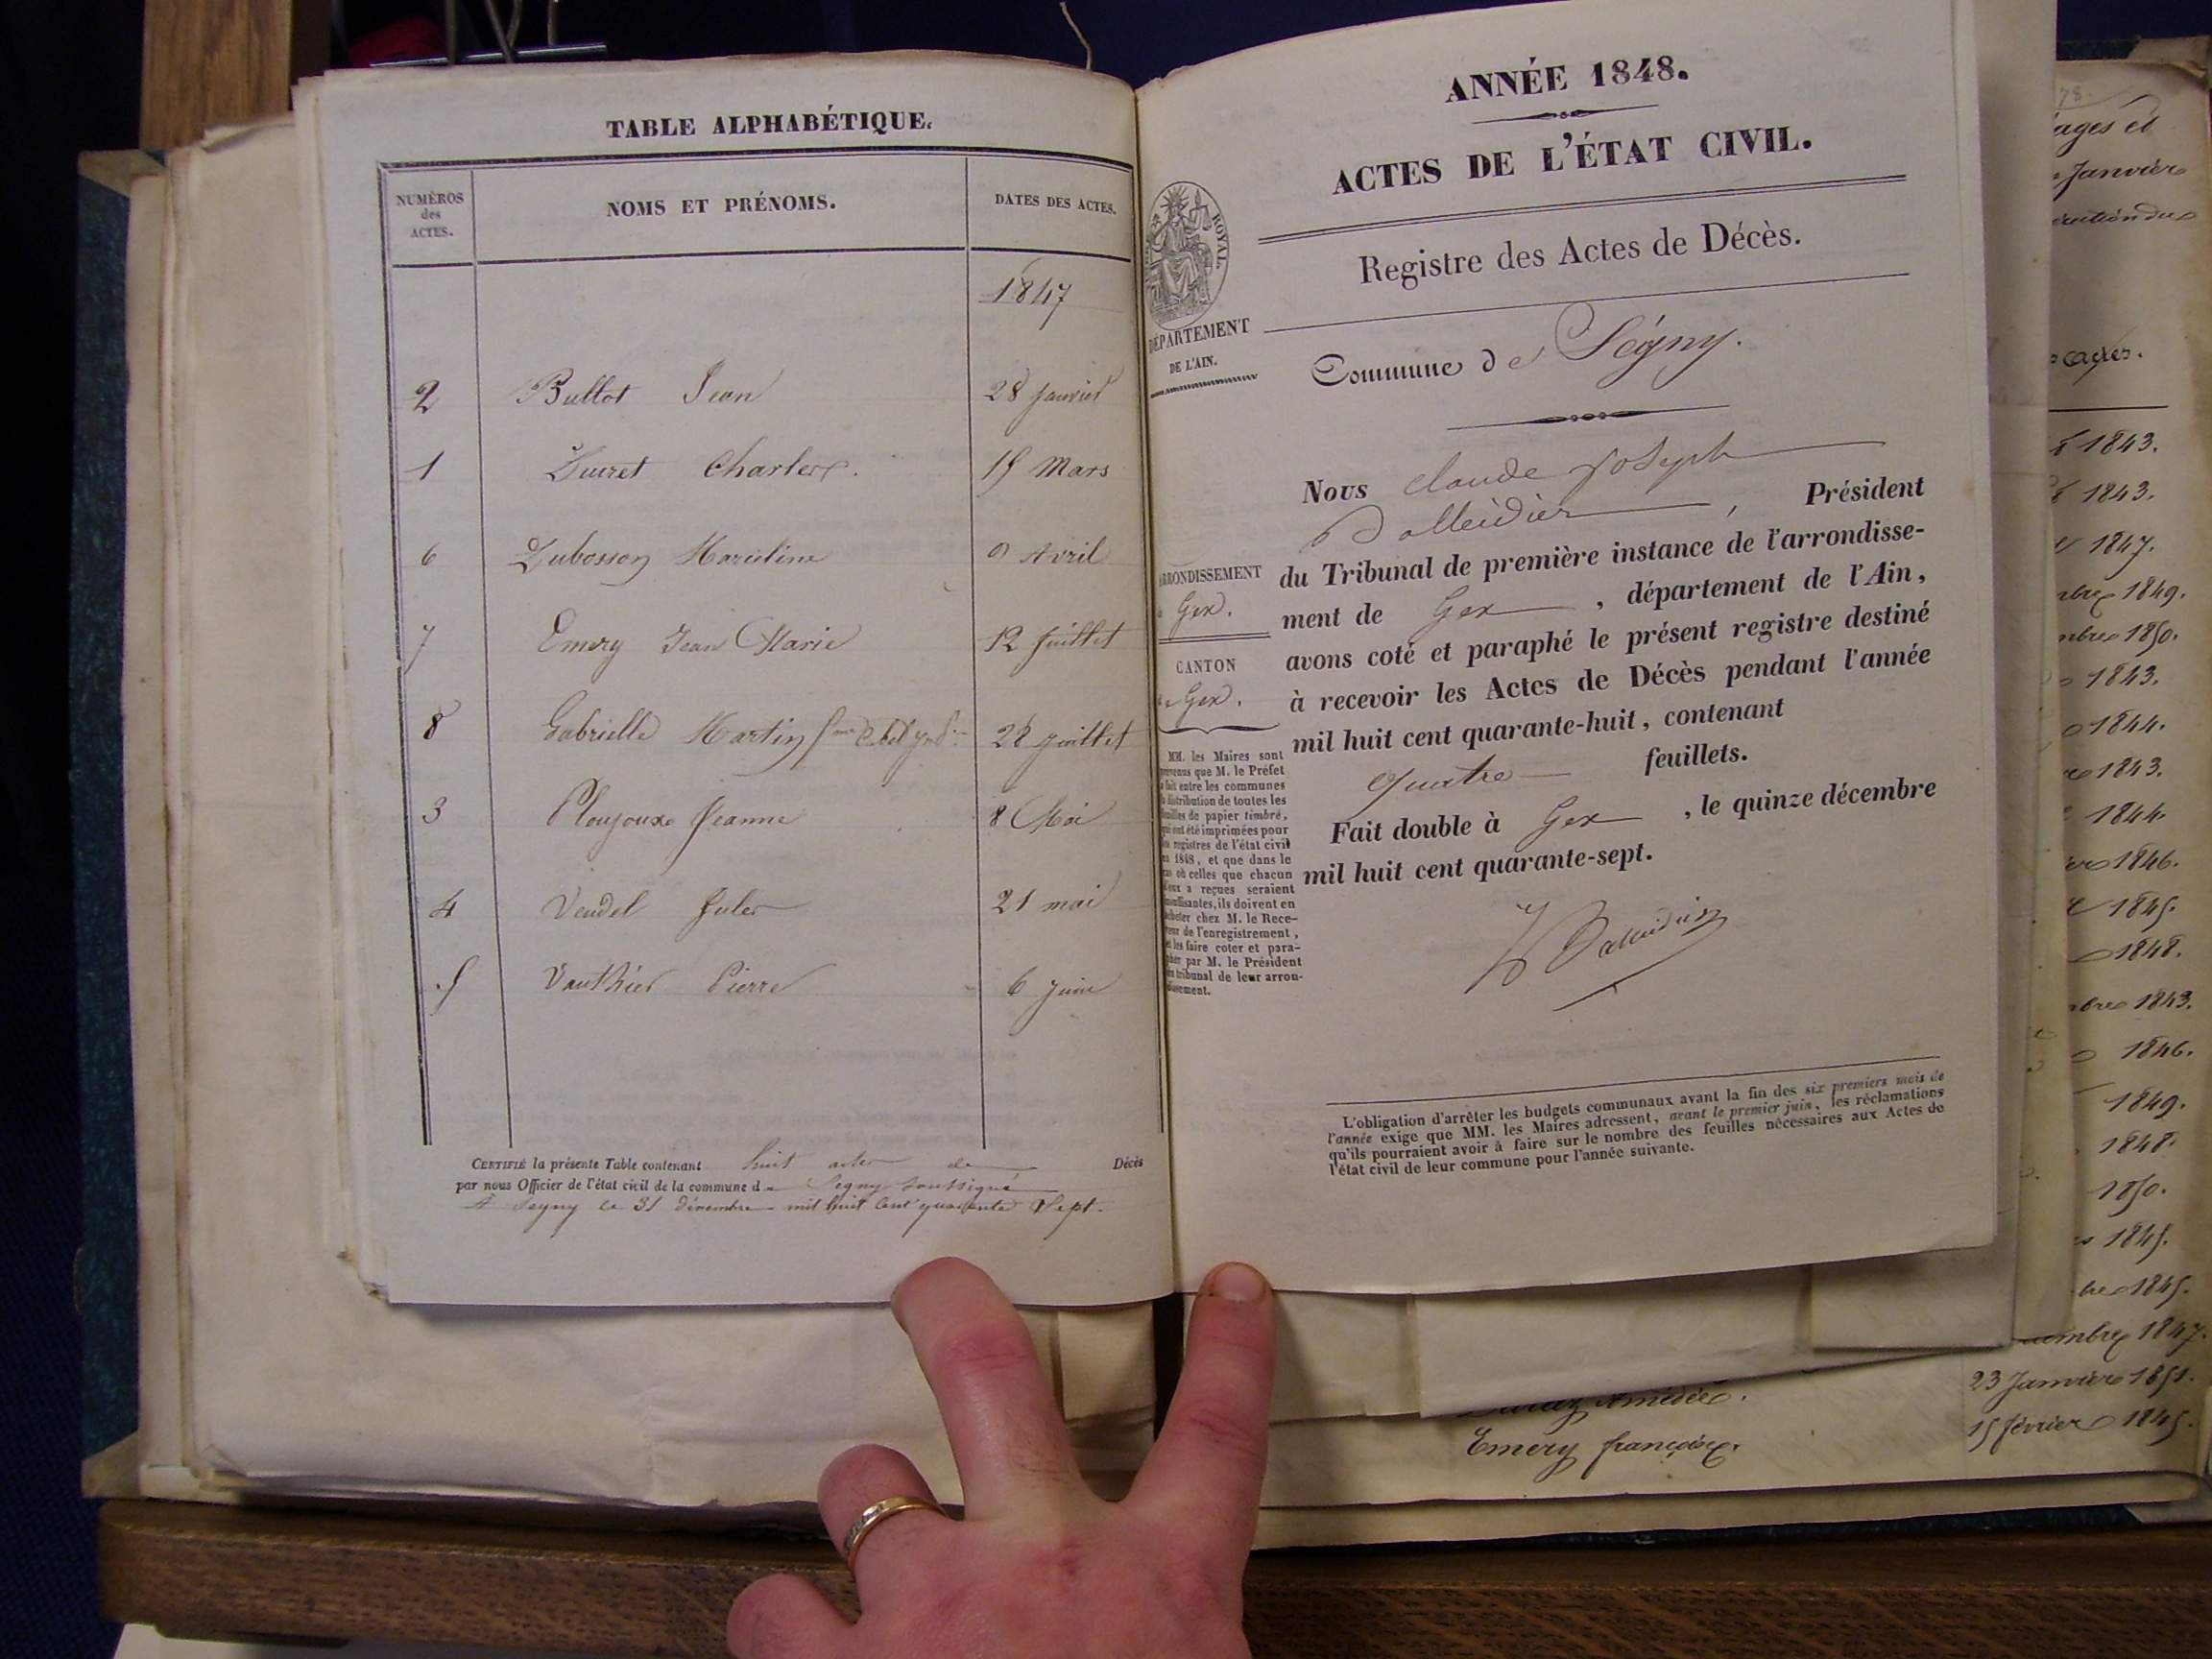 TABLE ALPHABÉTIQUE.
NUMÉROS des ACTES.
NOMS ET PRÉNOMS.
DATES DES ACTES.
1847
2 Bullot Jean 28 janvier
1 Duret Charles. 15 Mars
6 Dubosson 9 Avril
7 Emery Jean Marie 12 juillet
8 Gabrielle Martin 28 juillet
3 Ploujoux Jeanne 8 Mai
4 Vendel Jules 21 mai
5 Vauthier Pierre 6 juin
CERTIFIÉ la présente Table contenant huit actes de Décès
par nous Officier de l'état civil de la commune de Segny soussigné
A Segny le 31 décembre mil huit cent quarante Sept.
ANNÉE 1848.
ACTES DE L'ÉTAT CIVIL.
Registre des Actes de Décès.
ROYAL
DÉPARTEMENT
DE L'AIN.
Commune de Ségny.
Nous Claude Joseph
, Président
du Tribunal de première instance de l'arrondisse-
ment de Gex , département de l'Ain,
avons coté et paraphé le présent registre destiné
à recevoir les Actes de Décès pendant l'année
mil huit cent quarante-huit, contenant
quatre feuillets.
Fait double à Gex , le quinze décembre
mil huit cent quarante-sept.
ARRONDISSEMENT
Gex.
CANTON
de Gex.
MM. les Maires sont
prévenus que M. le Préfet
a fait entre les communes
la distribution de toutes les
feuilles de papier timbré,
qui ont été imprimées pour
les registres de l'état civil
en 1848, et que dans le
cas où celles que chacun
d'eux a reçues seraient
insuffisantes, ils doivent en
acheter chez M. le Rece-
veur de l'enregistrement,
et les faire coter et para-
pher par M. le Président
du tribunal de leur arron-
dissement.
L'obligation d'arrêter les budgets communaux avant la fin des six premiers mois de
l'année exige que MM. les Maires adressent, avant le premier juin, les réclamations
qu'ils pourraient avoir à faire sur le nombre des feuilles nécessaires aux Actes de
l'état civil de leur commune pour l'année suivante.
78.
ages et
Janvier
1843.
1843.
1847.
1849.
1850.
1843.
1844.
1843.
1844.
1846.
1845.
1848.
1843.
1846.
1849.
1848.
1850.
1845.
1845.
1847.
23 Janvier 1851.
Amédée.
15 février 1845.
Emery françoise.